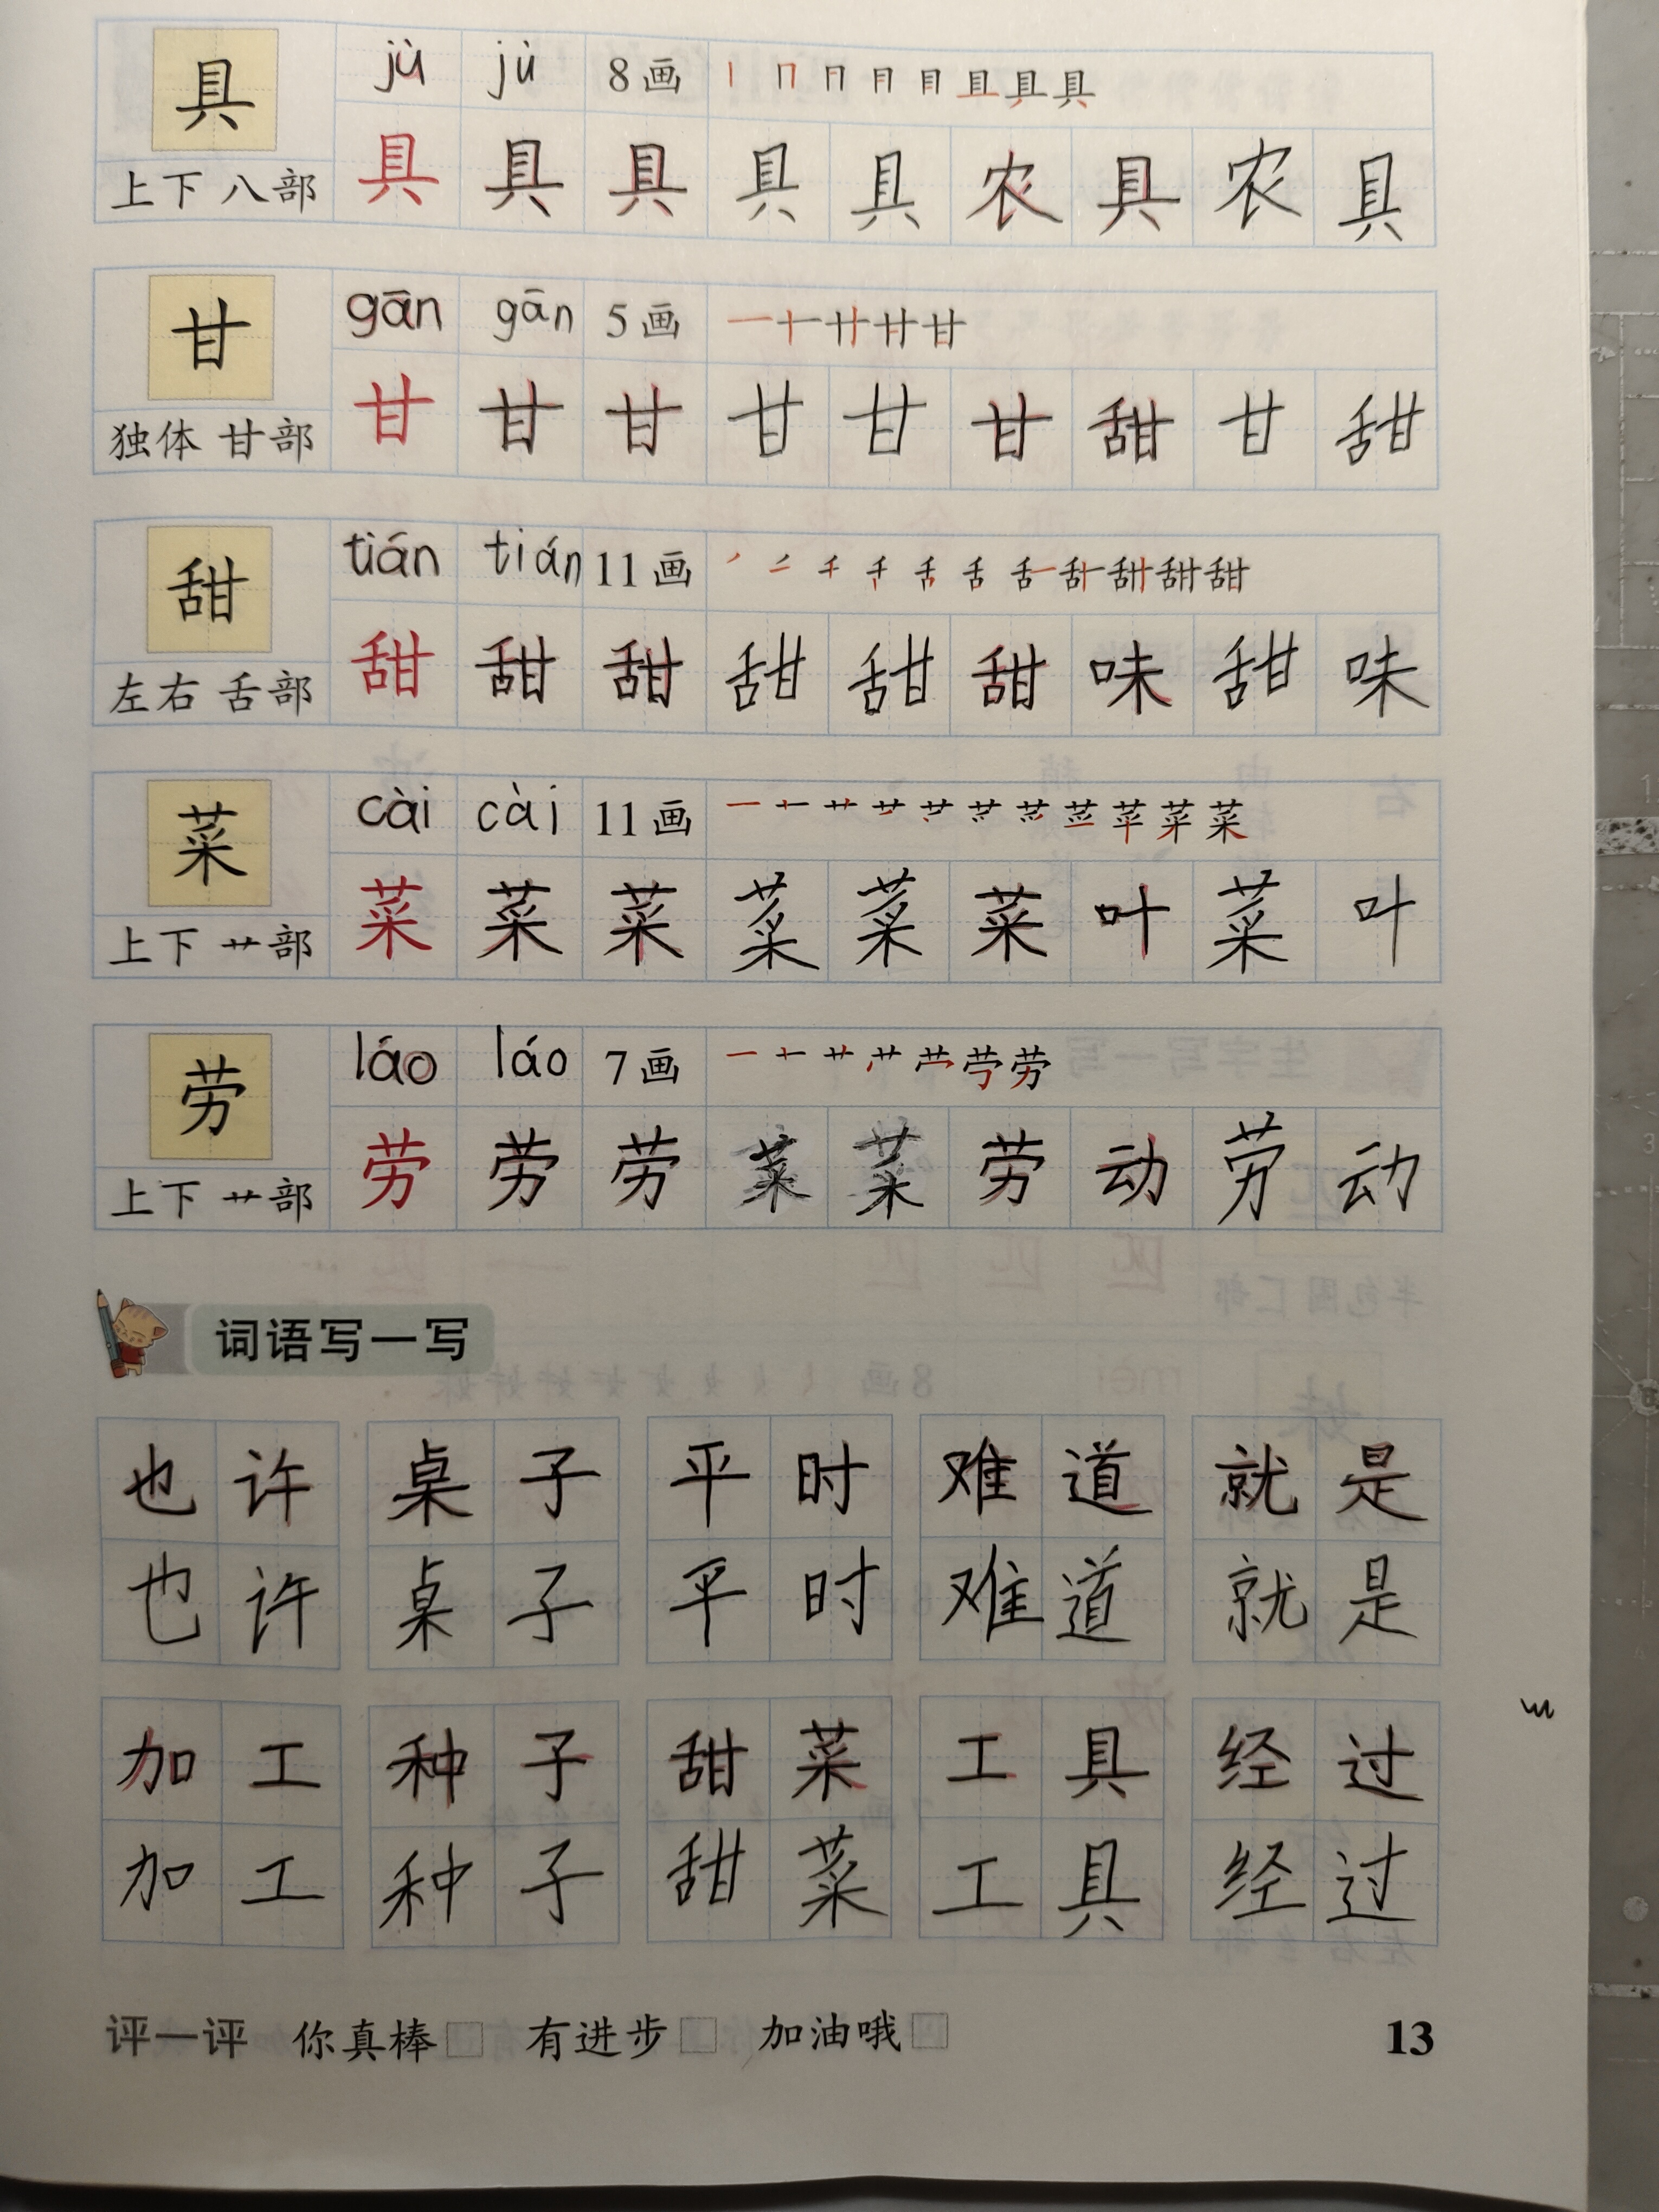 jù jù 8画 丨 冂 冃 月 目 且 具 具
具
上下 八部 具 具 具 具 具 农 具 农 具
gān gān 5画 一 十 廿 廿 甘
甘
独体 甘部 甘 甘 甘 甘 甘 甘 甜 甘 甜
tián tián 11画
甜
左右 舌部 甜 甜 甜 甜 甜 甜 味 甜 味
cài cài 11画
菜
上下 艹部 菜 菜 菜 菜 菜 菜 叶 菜 叶
láo láo 7画
劳
上下 艹部 劳 劳 劳 菜 菜 劳 动 劳 动
词语写一写
也许 桌子 平时 难道 就是
也许 桌子 平时 难道 就是
加工 种子 甜菜 工具 经过
加工 种子 甜菜 工具 经过
评一评 你真棒 有进步 加油哦 13